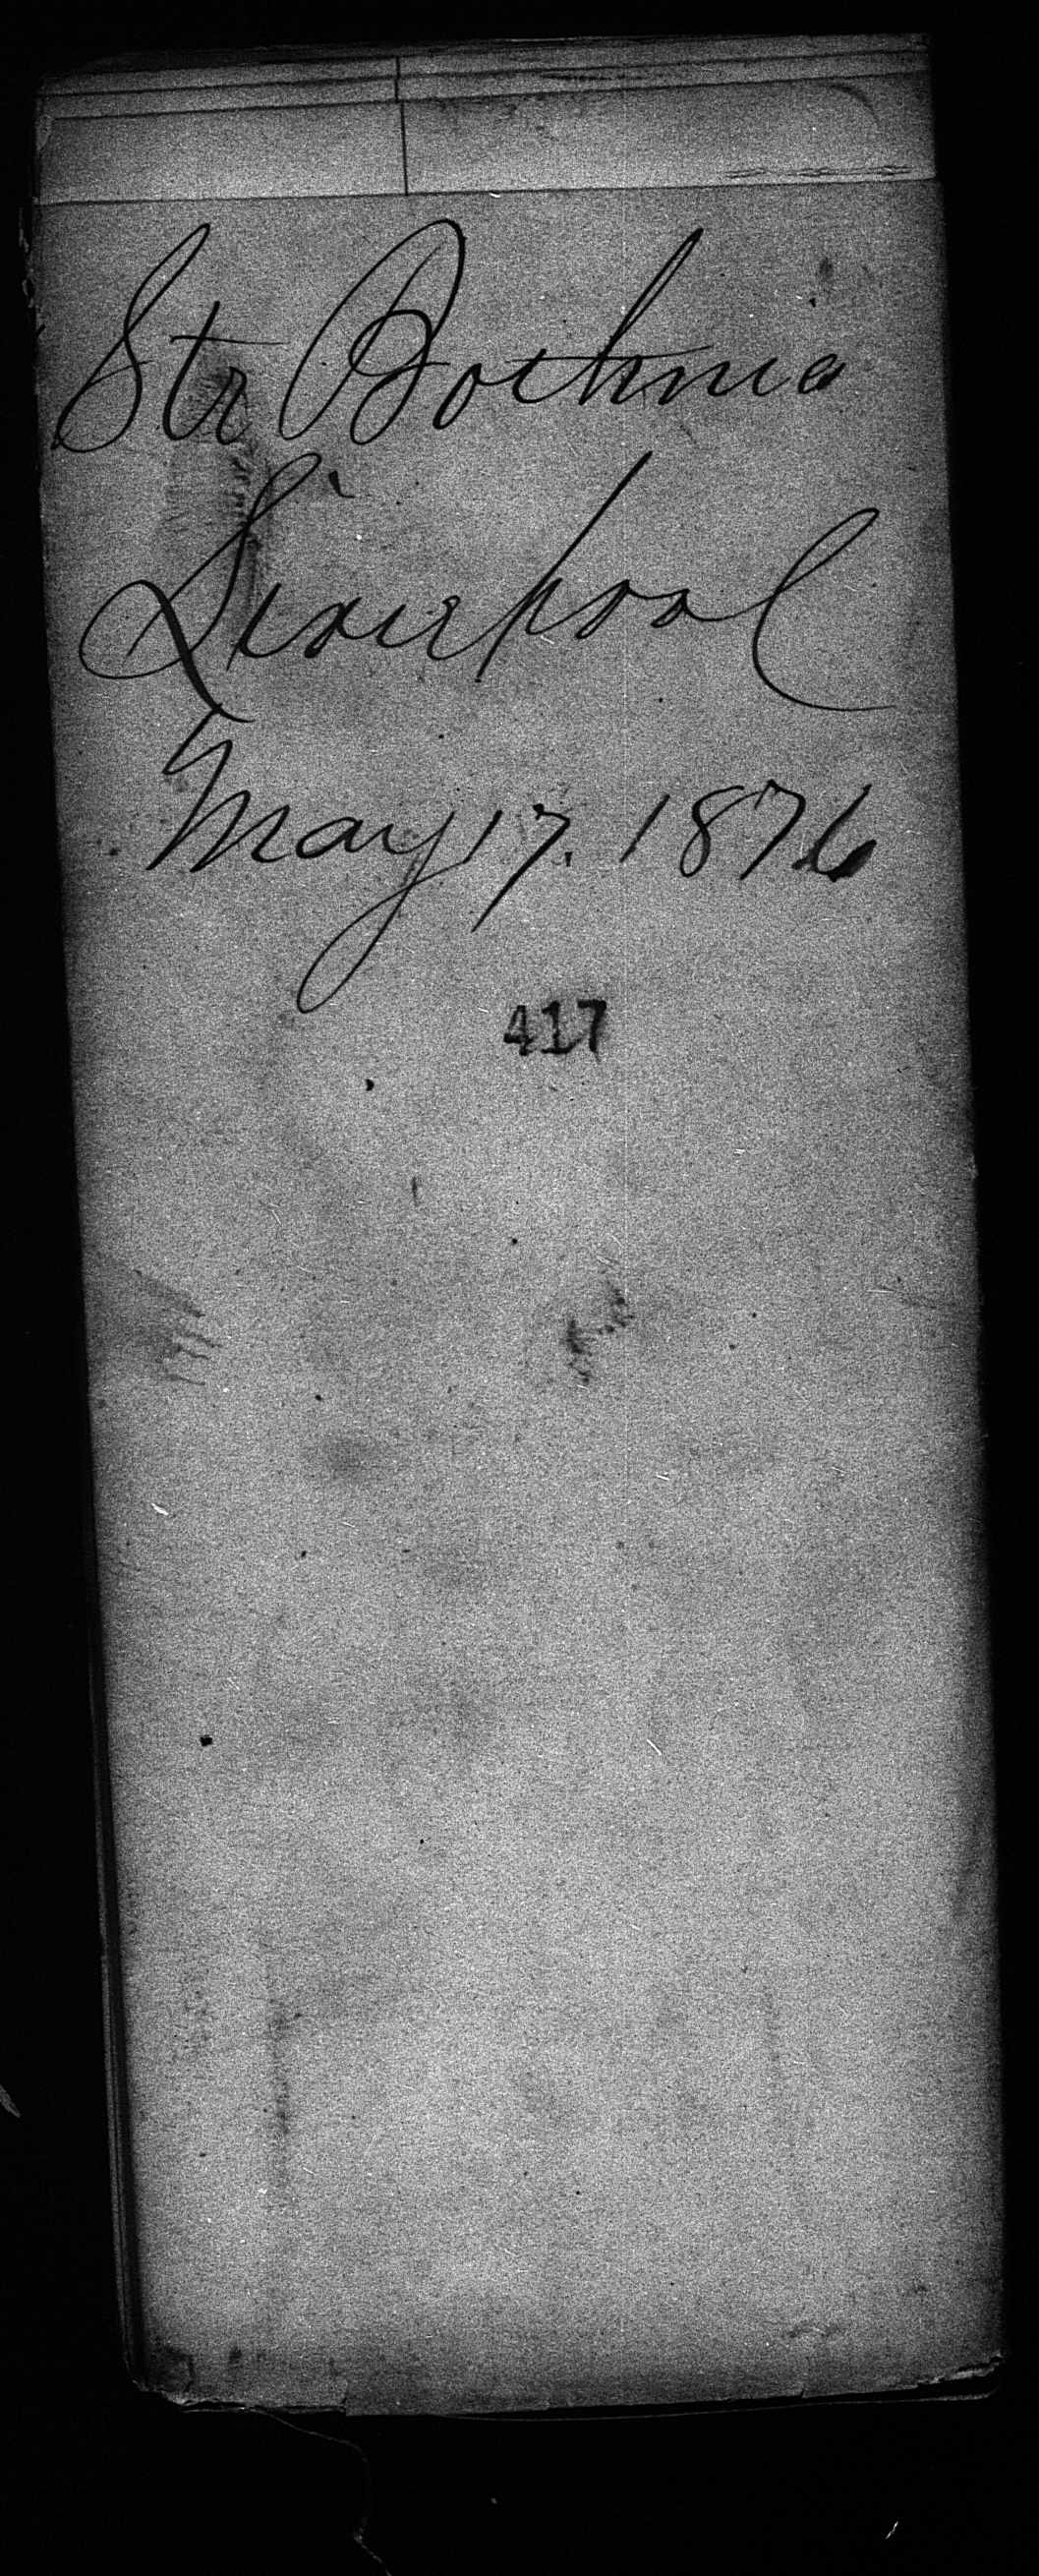 Str Bothnia
Liverpool
May 17. 1876
417